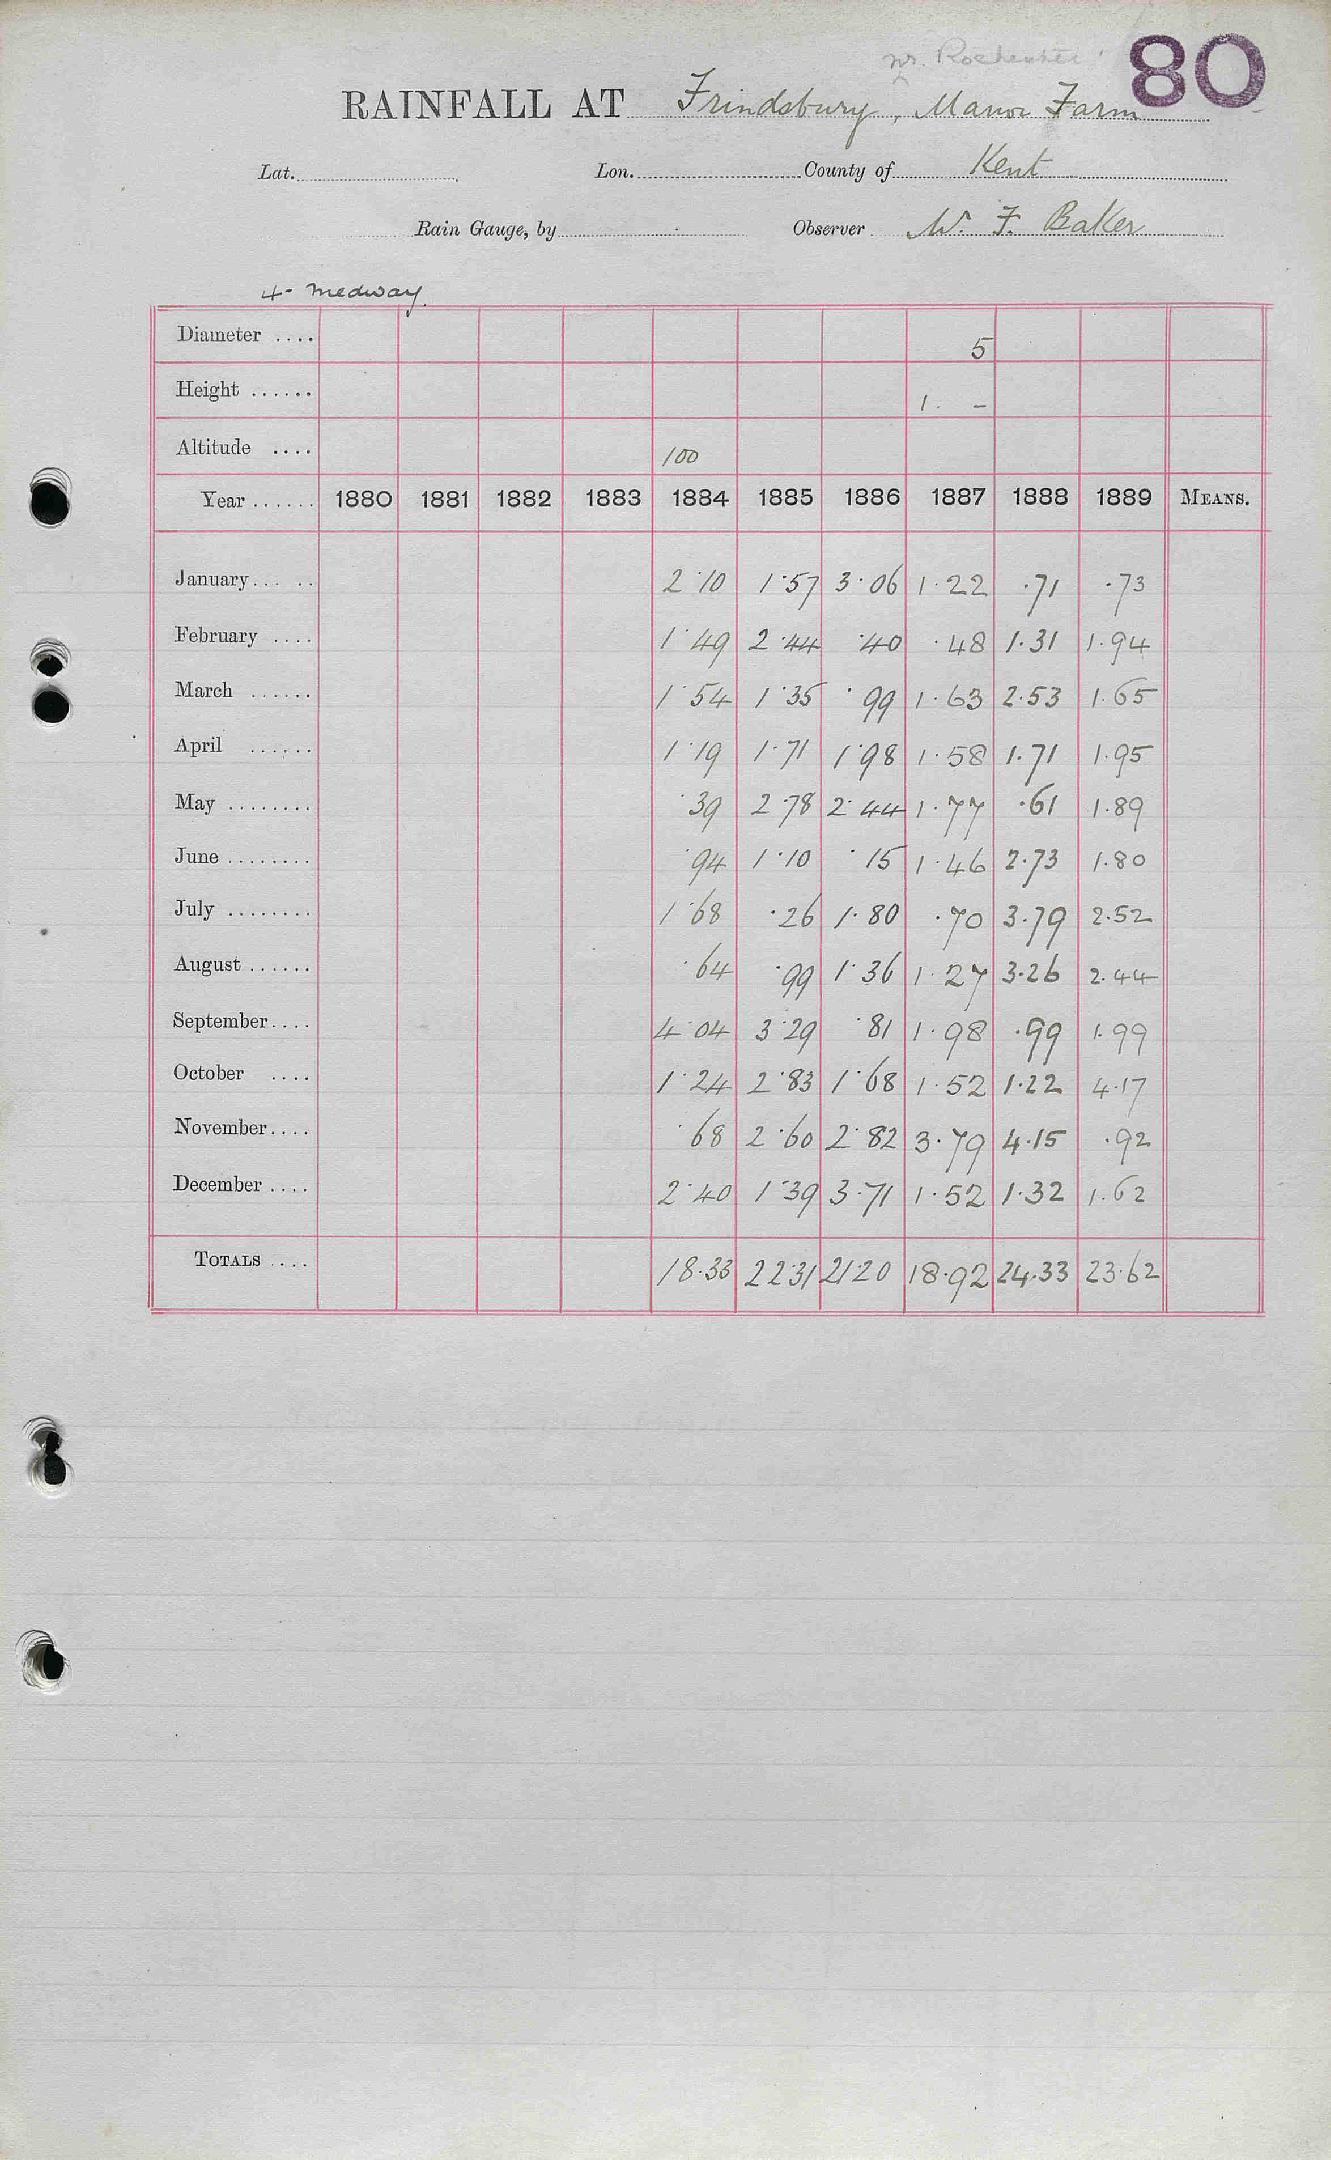 nr. Rochester 80
RAINFALL AT Frindsbury, Manor Farm
Lat. Lon. County of Kent
Rain Gauge, by Observer W. F. Baker
4 - Medway
Diameter .... 5
Height ...... 1. -
Altitude .... 100
Year ...... 1880 1881 1882 1883 1884 1885 1886 1887 1888 1889 MEANS.
January... .. 2.10 1.57 3.06 1.22 .71 .73
February .... 1.49 2.44 .40 .48 1.31 1.94
March ...... 1.54 1.35 .99 1.63 2.53 1.65
April ...... 1.19 1.71 1.98 1.58 1.71 1.95
May ........ .39 2.78 2.44 1.77 .61 1.89
June ........ .94 1.10 .15 1.46 2.73 1.80
July ........ 1.68 .26 1.80 .70 3.79 2.52
August ...... .64 .99 1.36 1.27 3.26 2.44
September.... 4.04 3.29 .81 1.98 .99 1.99
October .... 1.24 2.83 1.68 1.52 1.22 4.17
November.... .68 2.60 2.82 3.79 4.15 .92
December .... 2.40 1.39 3.71 1.52 1.32 1.62
TOTALS .... 18.33 22.31 21.20 18.92 24.33 23.62